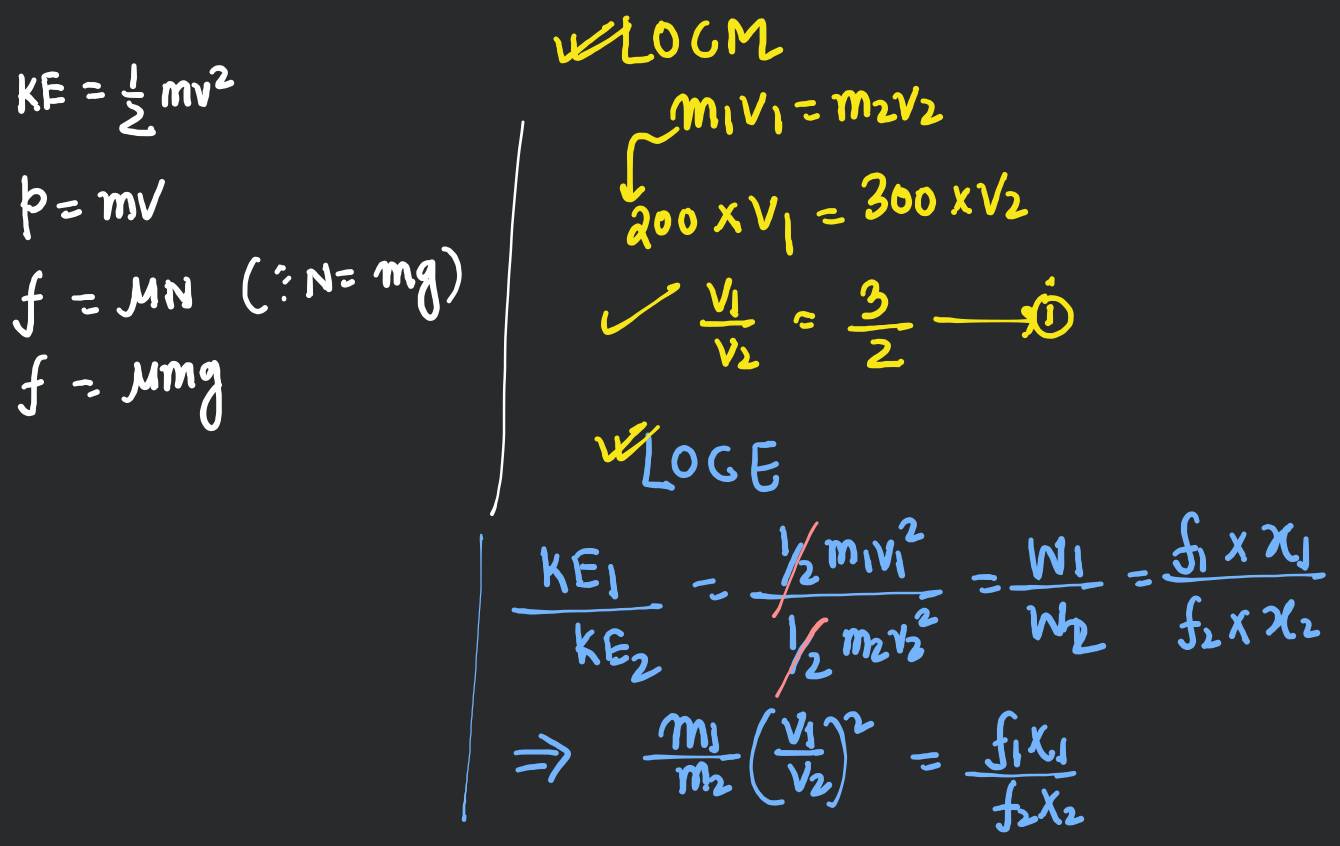 KE = 1/2 mv²
p = mv
f = μN (∵ N = mg)
f = μmg
LOCM
m₁v₁ = m₂v₂
200 × v₁ = 300 × v₂
v₁/v₂ = 3/2 — ①
LOCE
KE₁/KE₂ = (1/2 m₁v₁²)/(1/2 m₂v₂²) = W₁/W₂ = (f₁ × x₁)/(f₂ × x₂)
⇒ m₁/m₂ (v₁/v₂)² = f₁x₁/f₂x₂